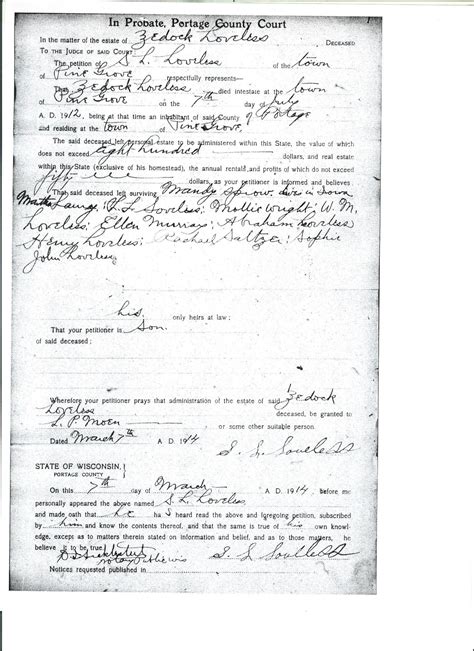 In Probate, Portage County Court
In the matter of the estate of Zedock Loveless DECEASED
TO THE JUDGE OF SAID COURT:
The petition of S. L. Loveless of the town
of Pine Grove respectfully represents—
That Zedock Loveless died intestate at the town
of Pine Grove on the 7th day of July
A. D. 1912, being at that time an inhabitant of said County of Portage
and residing at the town of Pine Grove.
The said deceased left personal estate to be administered within this State, the value of which
does not exceed Eight Hundred dollars, and real estate
within this State (exclusive of his homestead), the annual rents and profits of which do not exceed
fifty dollars, as your petitioner is informed and believes
That said deceased left surviving Mandy
S. L. Loveless; Mollie Wright; W. M.
Loveless; Ellen Murray; Abraham Loveless;
Henry Loveless; Rachael Saltze; Sophie
John Loveless
his only heirs at law;
That your petitioner is Son.
of said deceased;
Wherefore your petitioner prays that administration of the estate of said Zedock
Loveless deceased, be granted to
L. P. Moen or some other suitable person.
Dated March 7th A. D. 1914
S. L. Loveless
STATE OF WISCONSIN,
PORTAGE COUNTY
On this 7th day of March A. D. 1914, before me
personally appeared the above named S. L. Loveless
and made oath that he has heard read the above and foregoing petition, subscribed
by him and know the contents thereof, and that the same is true of his own knowl-
edge, except as to matters therein stated on information and belief, and as to those matters, he
believe it to be true.
S. L. Loveless
Notices requested published in